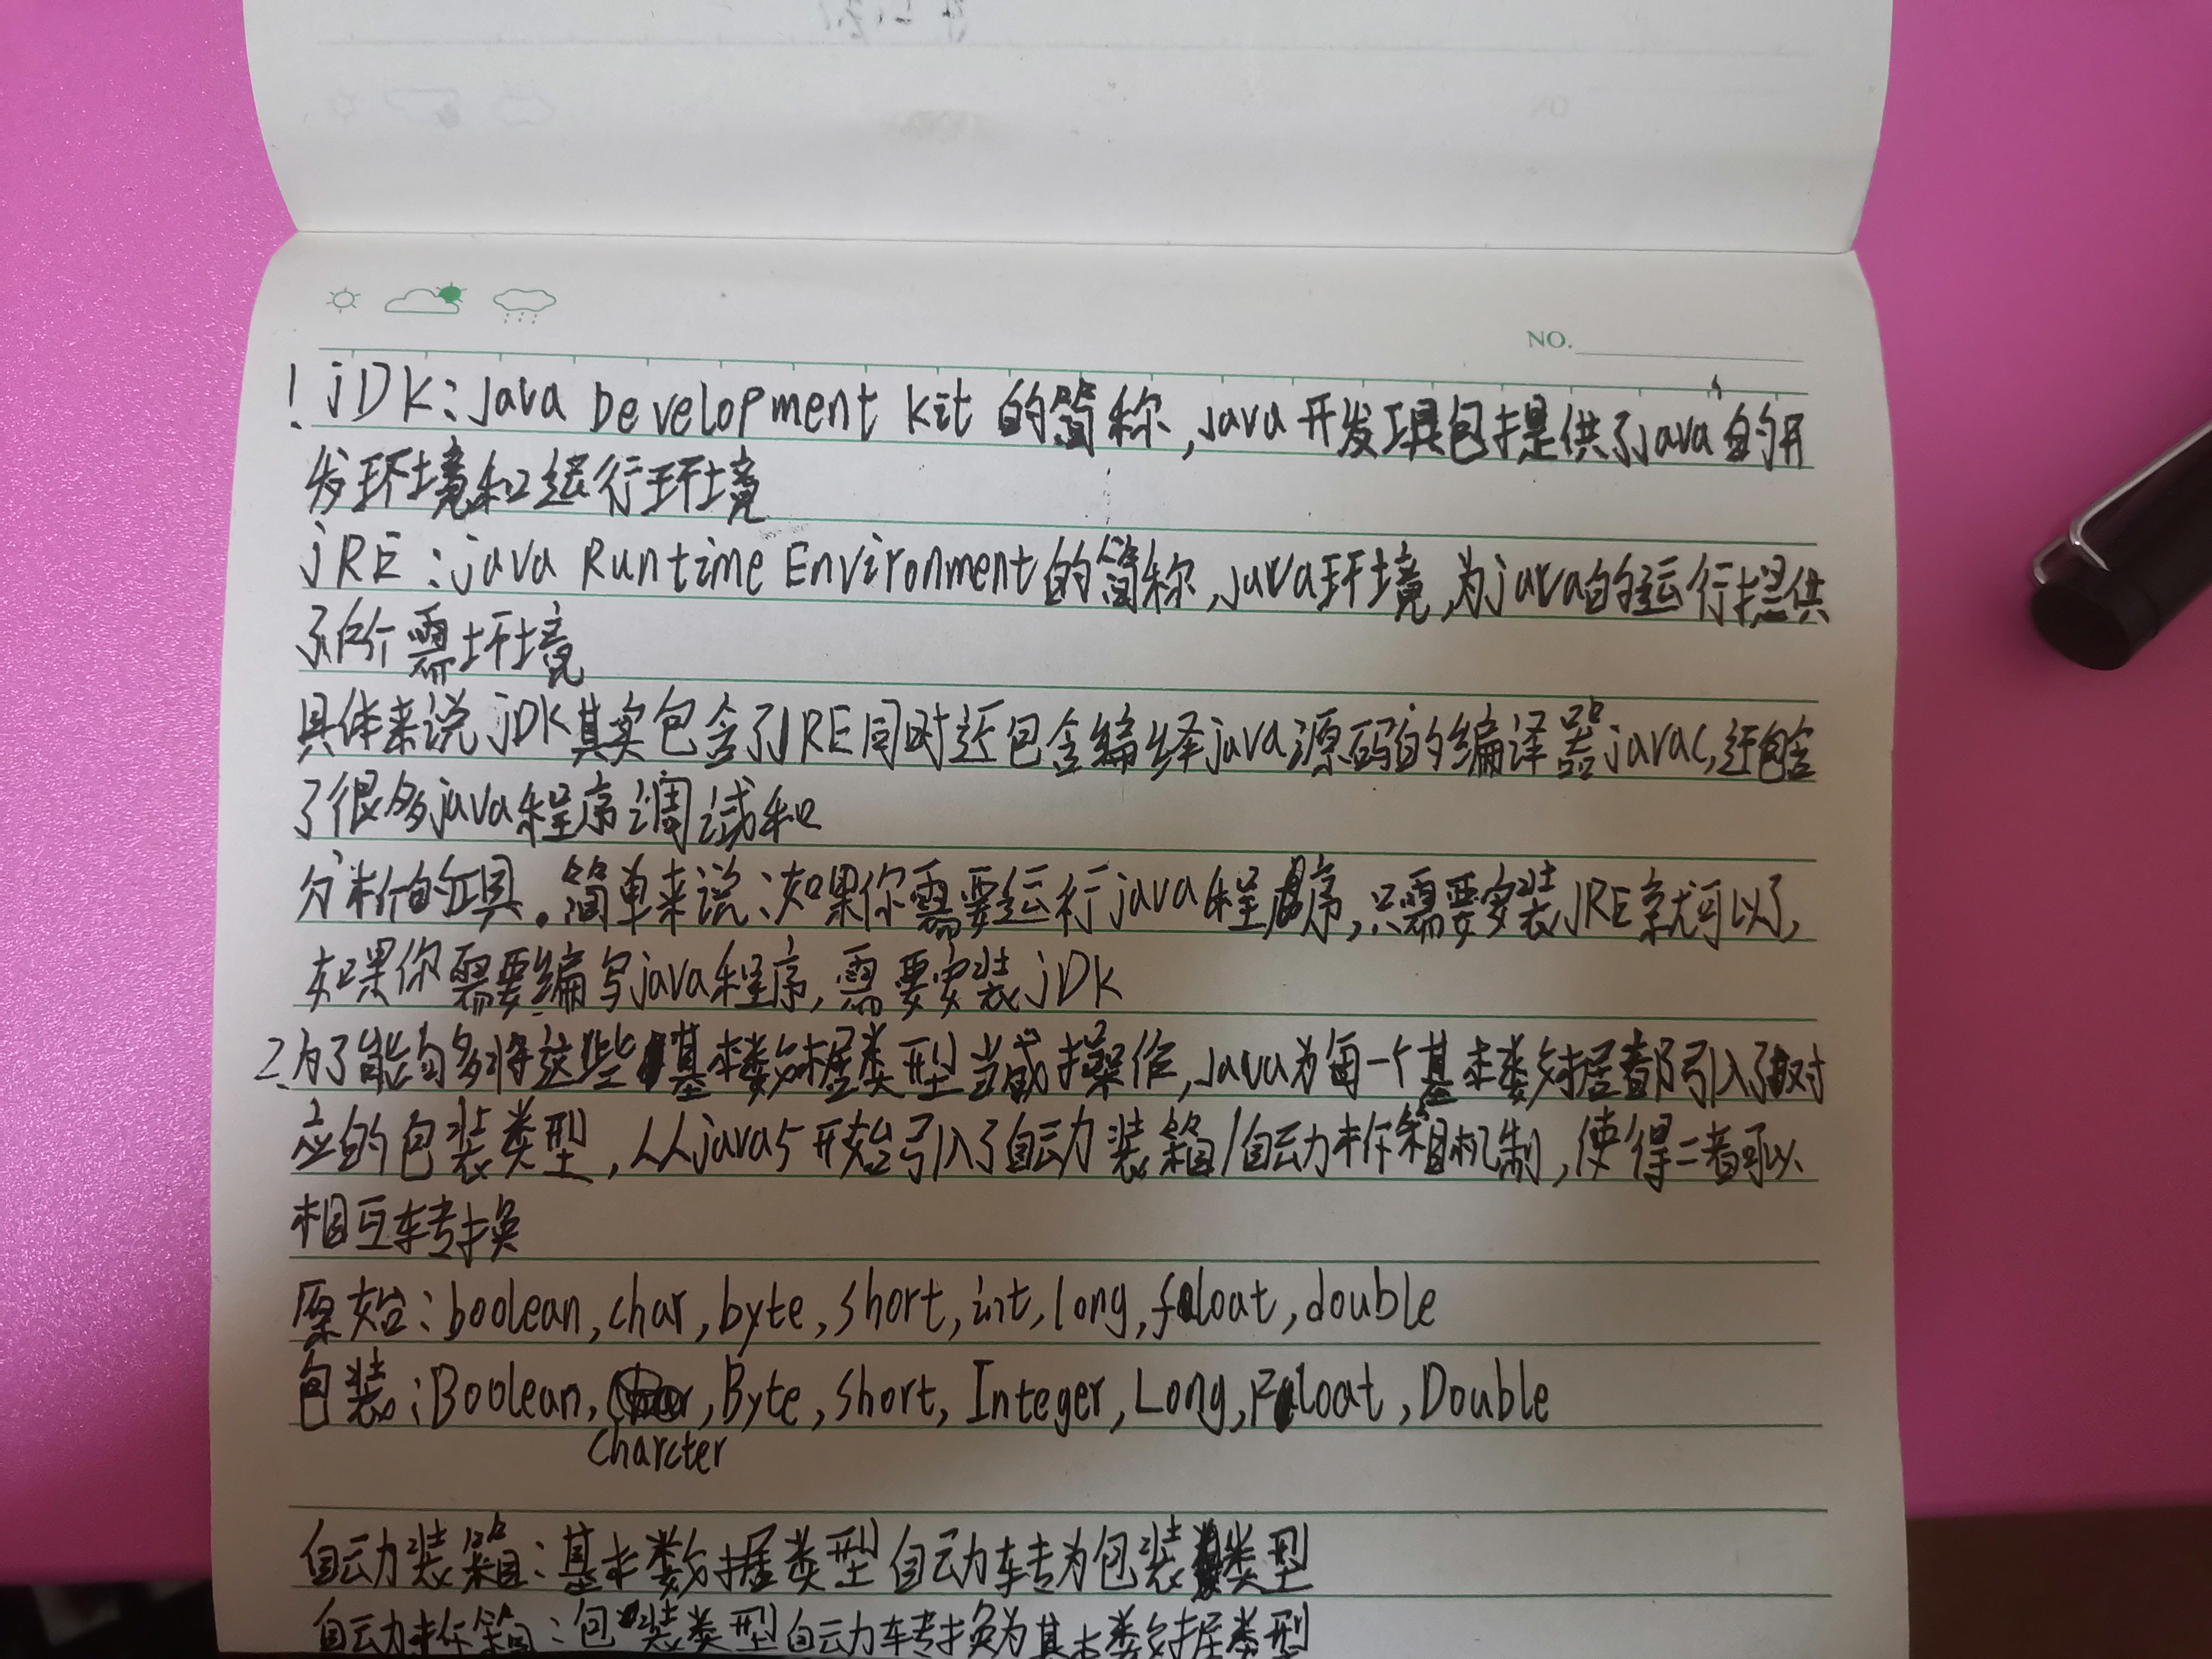 NO.
1.jDK:java Development Kit 的简称,java开发工具包提供了java的开
发环境和运行环境
jRE:java Runtime Environment的简称,java环境,为java的运行提供
了所需环境
具体来说jDK其实包含了JRE同时还包含编绎java源码的编译器javac,还包含
了很多java程序调试和
分析的工具。简单来说:如果你需要运行java程序,只需要安装JRE就可以了,
如果你需要编写java程序,需要安装jDK
2.为了能够将这些基本数据类型当成操作,java为每一个基本数据都引入了对
应的包装类型,从java5开始引入了自动装箱/自动拆箱机制,使得二者可以
相互转换
原始:boolean,char,byte,short,int,long,float,double
包装:Boolean,Charcter,Byte,Short,Integer,Long,Float,Double
自动装箱:基本数据类型自动转为包装类型
自动拆箱:包装类型自动转换为基本数据类型